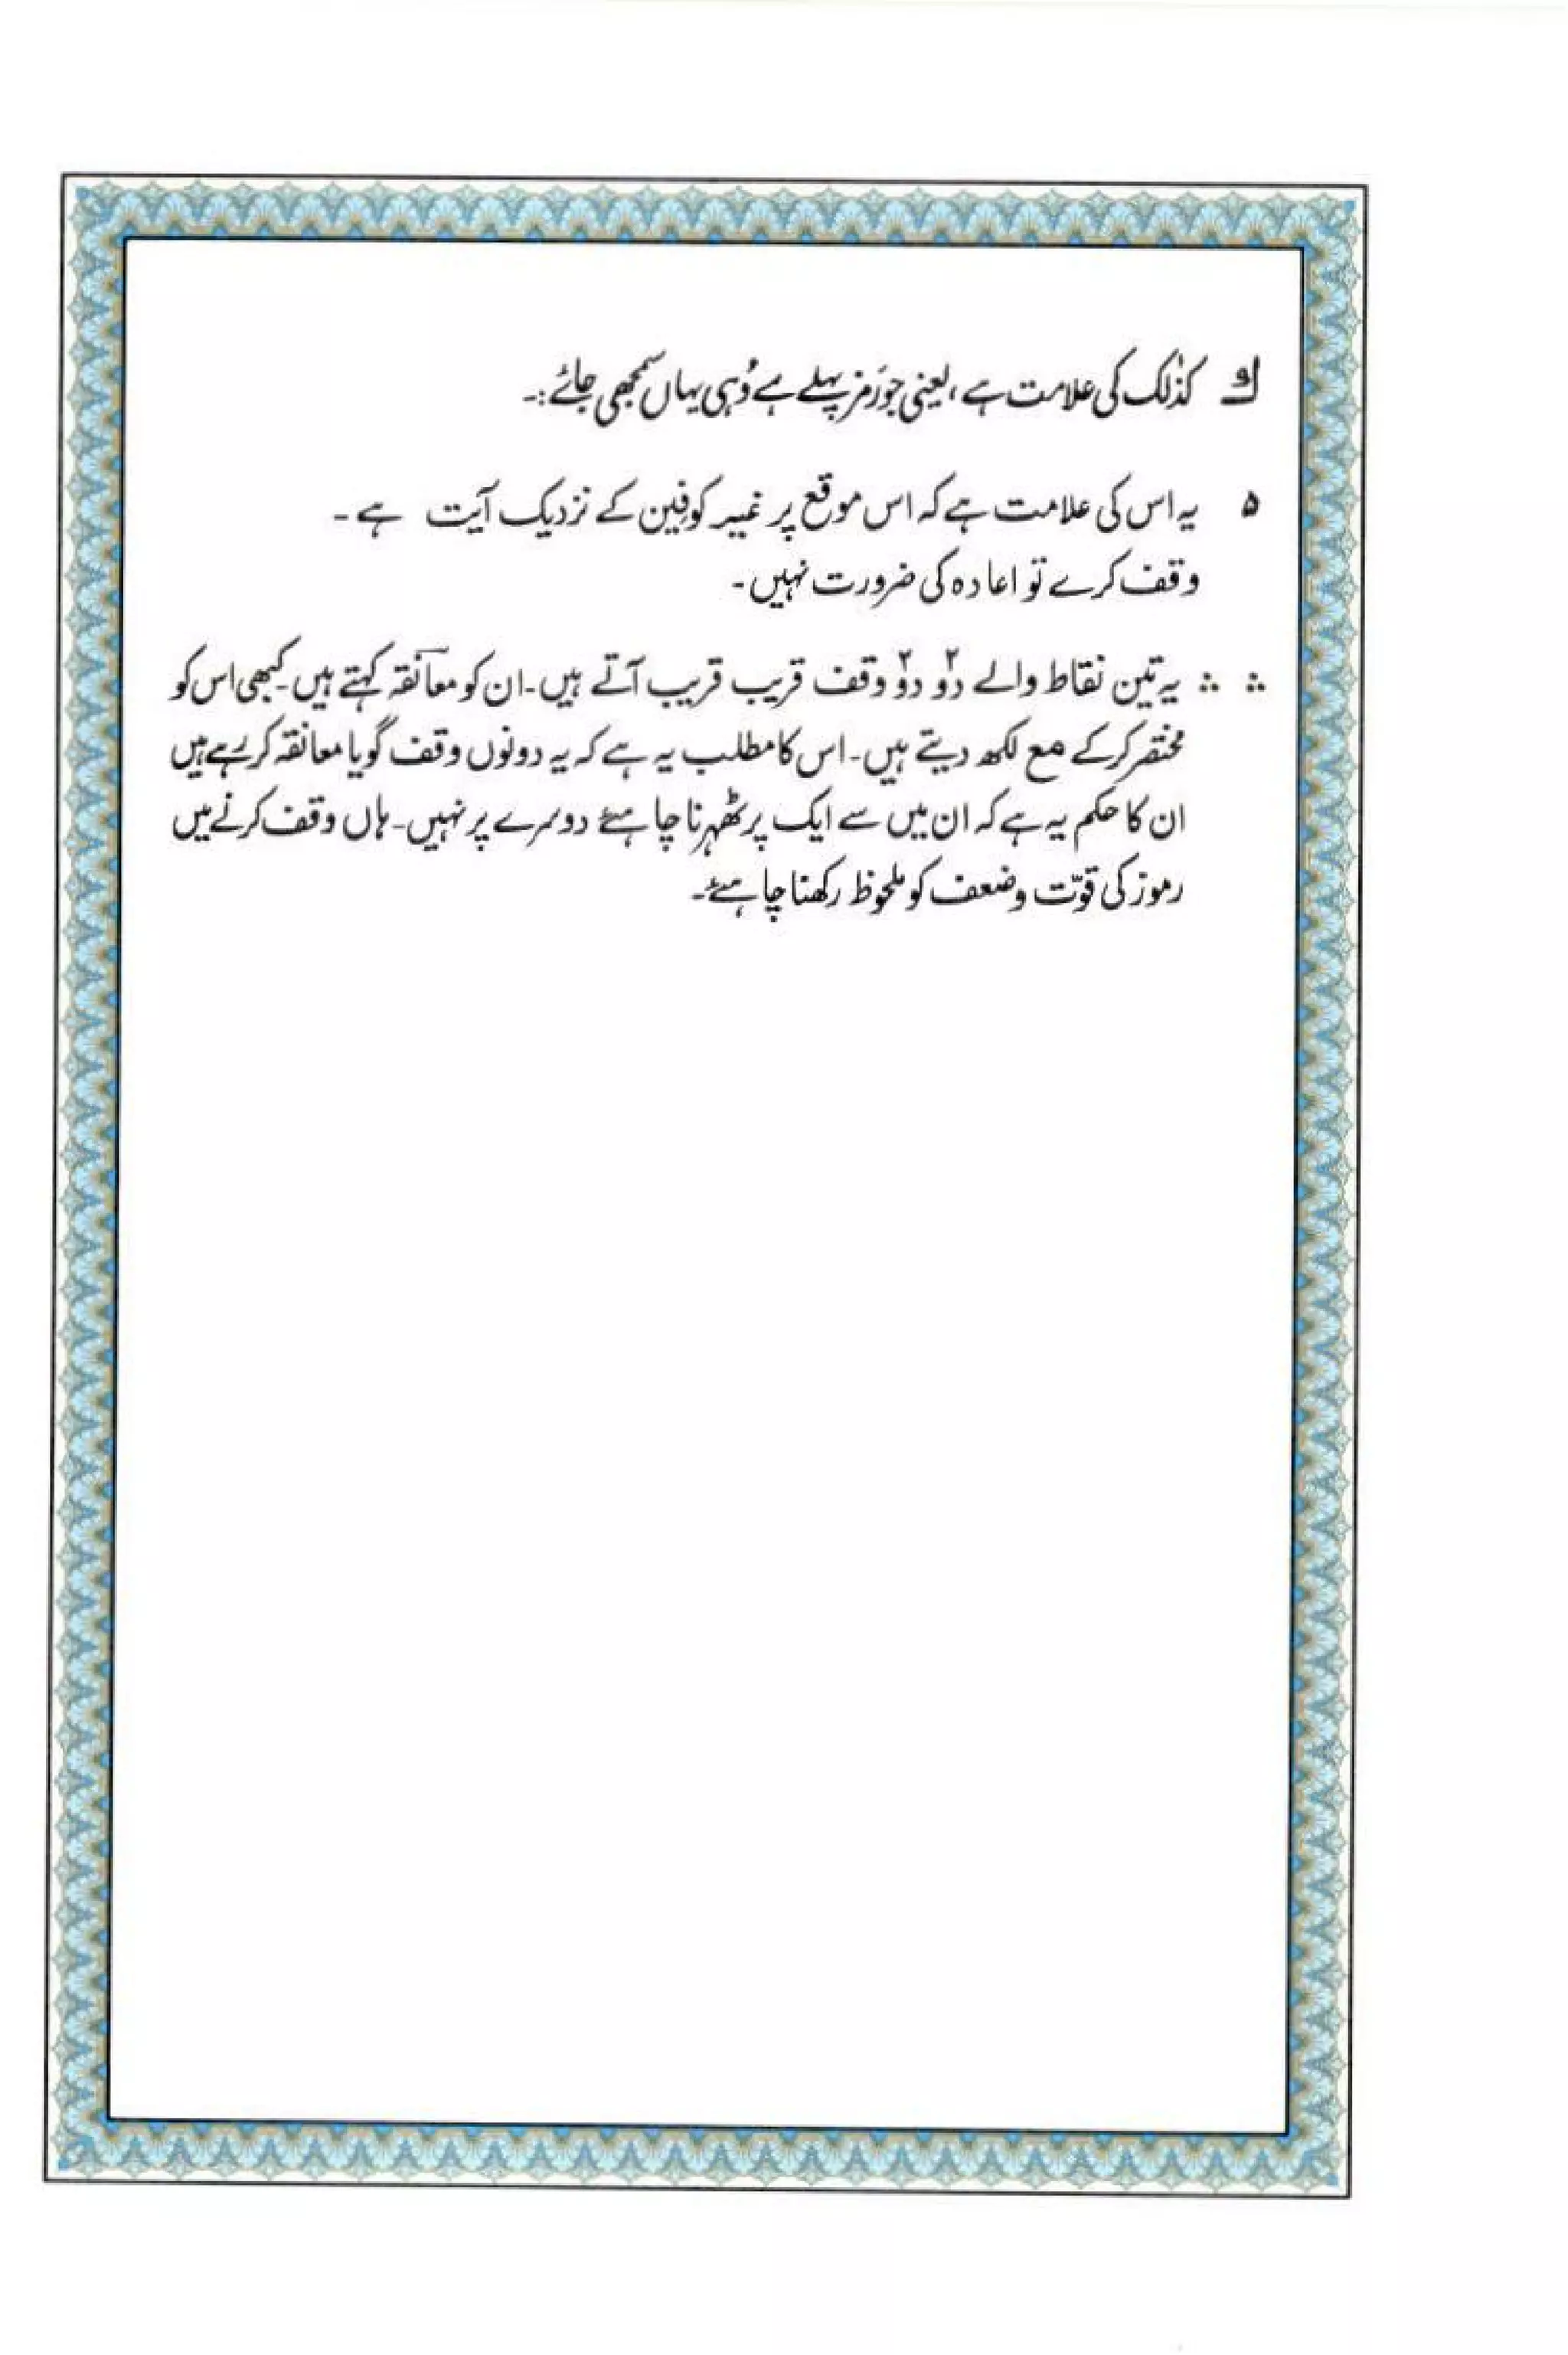 ك كذٰلك کی علامت ہے، یعنی جو رَمز پہلے ہے وُہی یہاں سمجھی جائے:۔
۵ یہ اس کی علامت ہے کہ اس موقع پر غیر کوفِیین کے نزدیک آیت ہے ۔
وقف کرے تو اعادہ کی ضرورت نہیں۔
∴ ∴ یہ تین نقاط والے دوؔ۲ دوؔ۲ وقف قریب قریب آتے ہیں۔ ان کو معآنقہ کہتے ہیں۔ کبھی اس کو
مختصر کرکے مع لکھ دیتے ہیں۔ اس کا مطلب یہ ہے کہ یہ دونوں وقف گویا معانقہ کر رہے ہیں
ان کا حکم یہ ہے کہ ان میں سے ایک پر ٹھہرنا چاہئے دوسرے پر نہیں۔ ہاں وقف کرنے میں
رموز کی قوّت وضعف کو ملحوظ رکھنا چاہئے۔